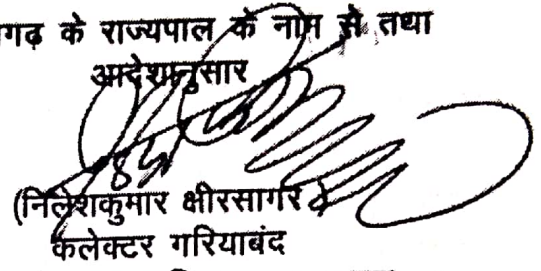 गढ़ के राज्यपाल के नाम से तथा
आदेशानुसार
(निलेशकुमार क्षीरसागर)
कलेक्टर गरियाबंद